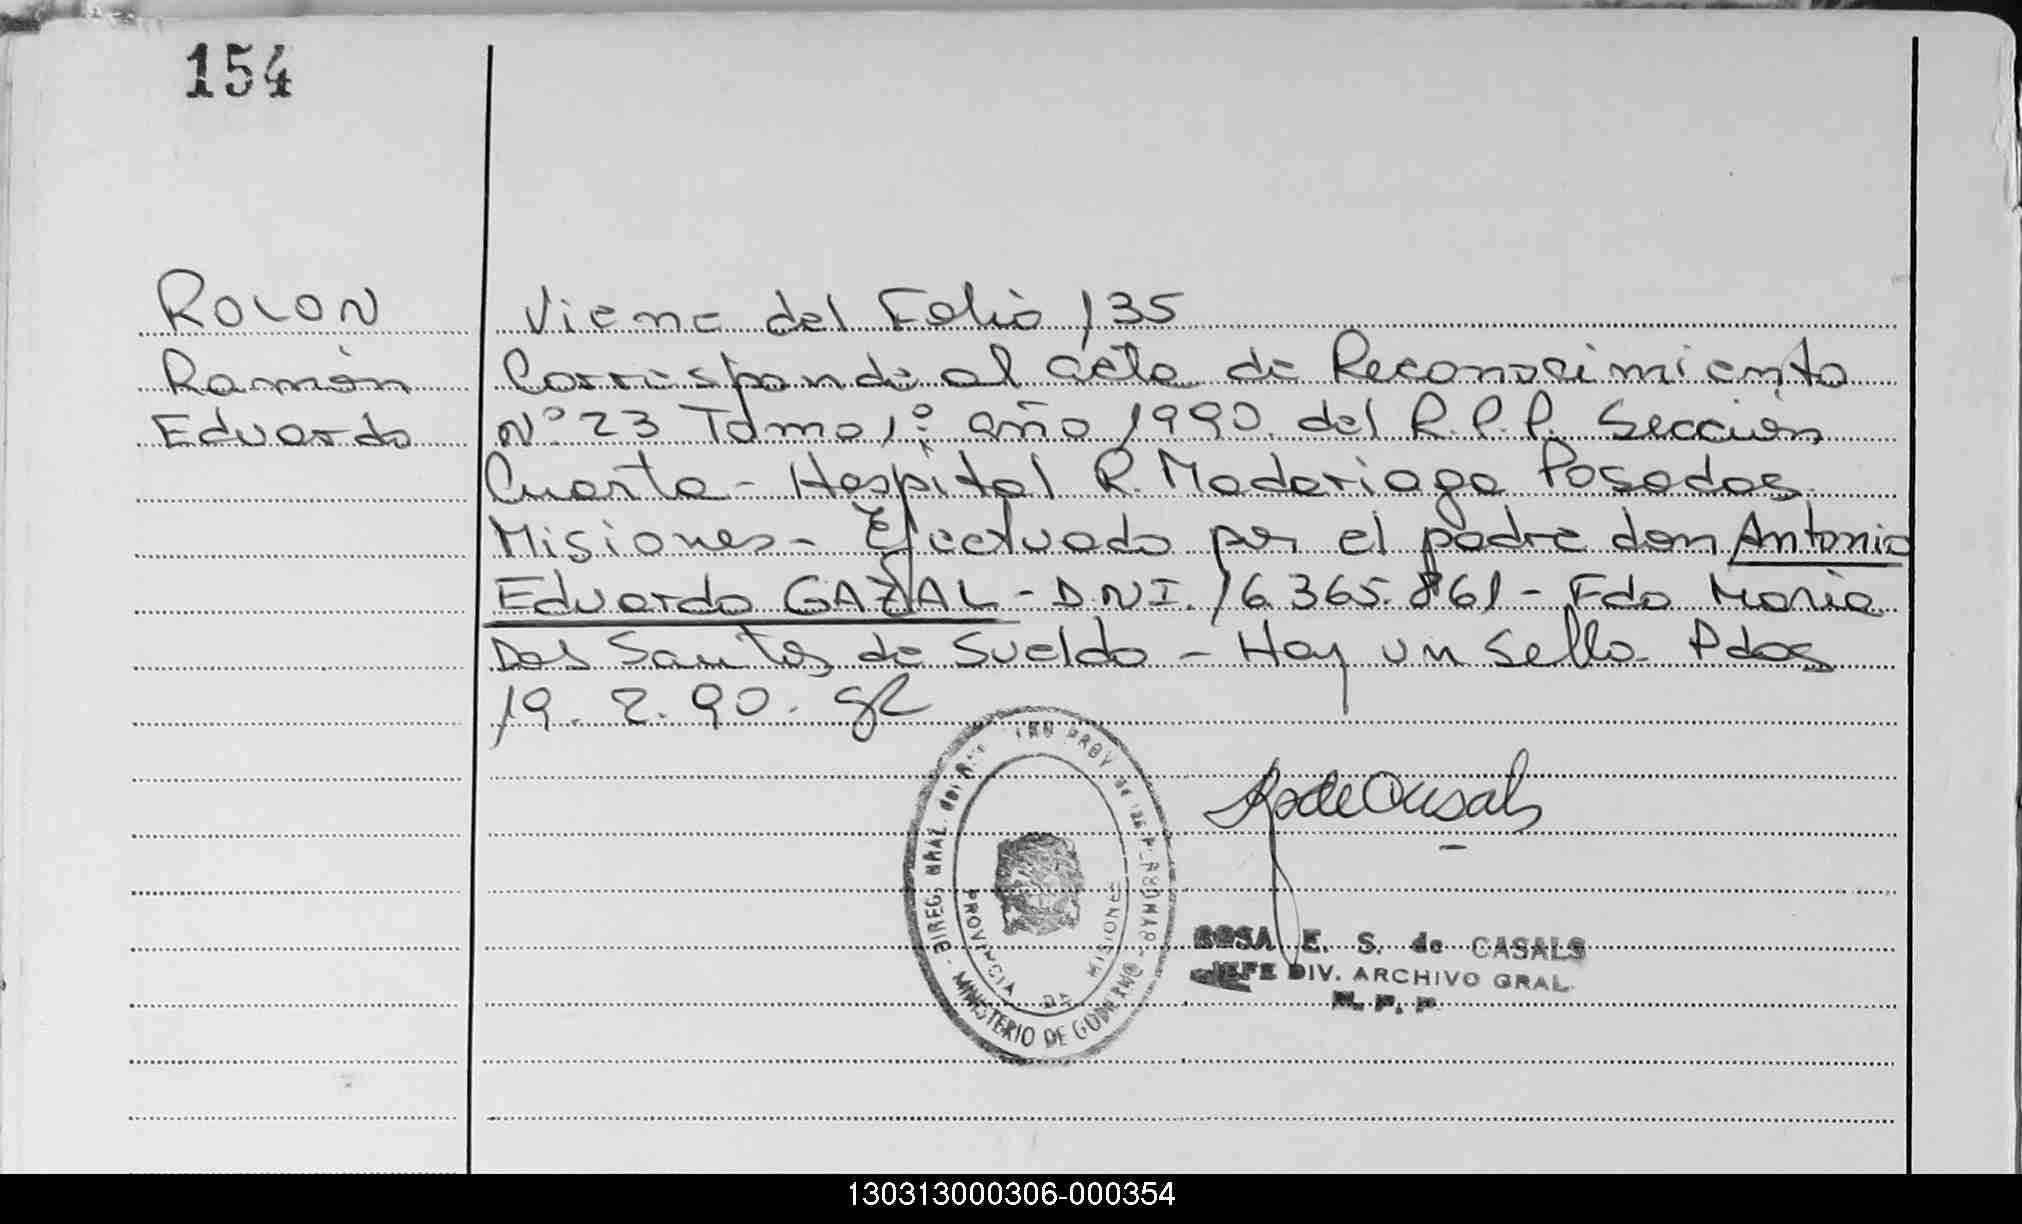 154
ROLON
Ramón
Eduardo
Viene del Folio 135
Corresponde al acta de Reconocimiento
Nº 23 Tomo 1º año 1990 del R.P.P. Sección
Cuarta - Hospital R. Madariaga Posadas
Misiones - Efectuado por el padre don Antonio
Eduardo GAZAL - D.N.I. 16.365.861 - Fdo Maria
Dos Santos de Sueldo - Hay un sello. Pdas
19. 2. 90.
DIREC. GRAL. DEL PROV de las PERSONAS - MINISTERIO DE GOBIERNO -
PROVINCIA DE MISIONES
R de Casals
ROSA E. S. de CASALS
JEFE DIV. ARCHIVO GRAL.
130313000306-000354